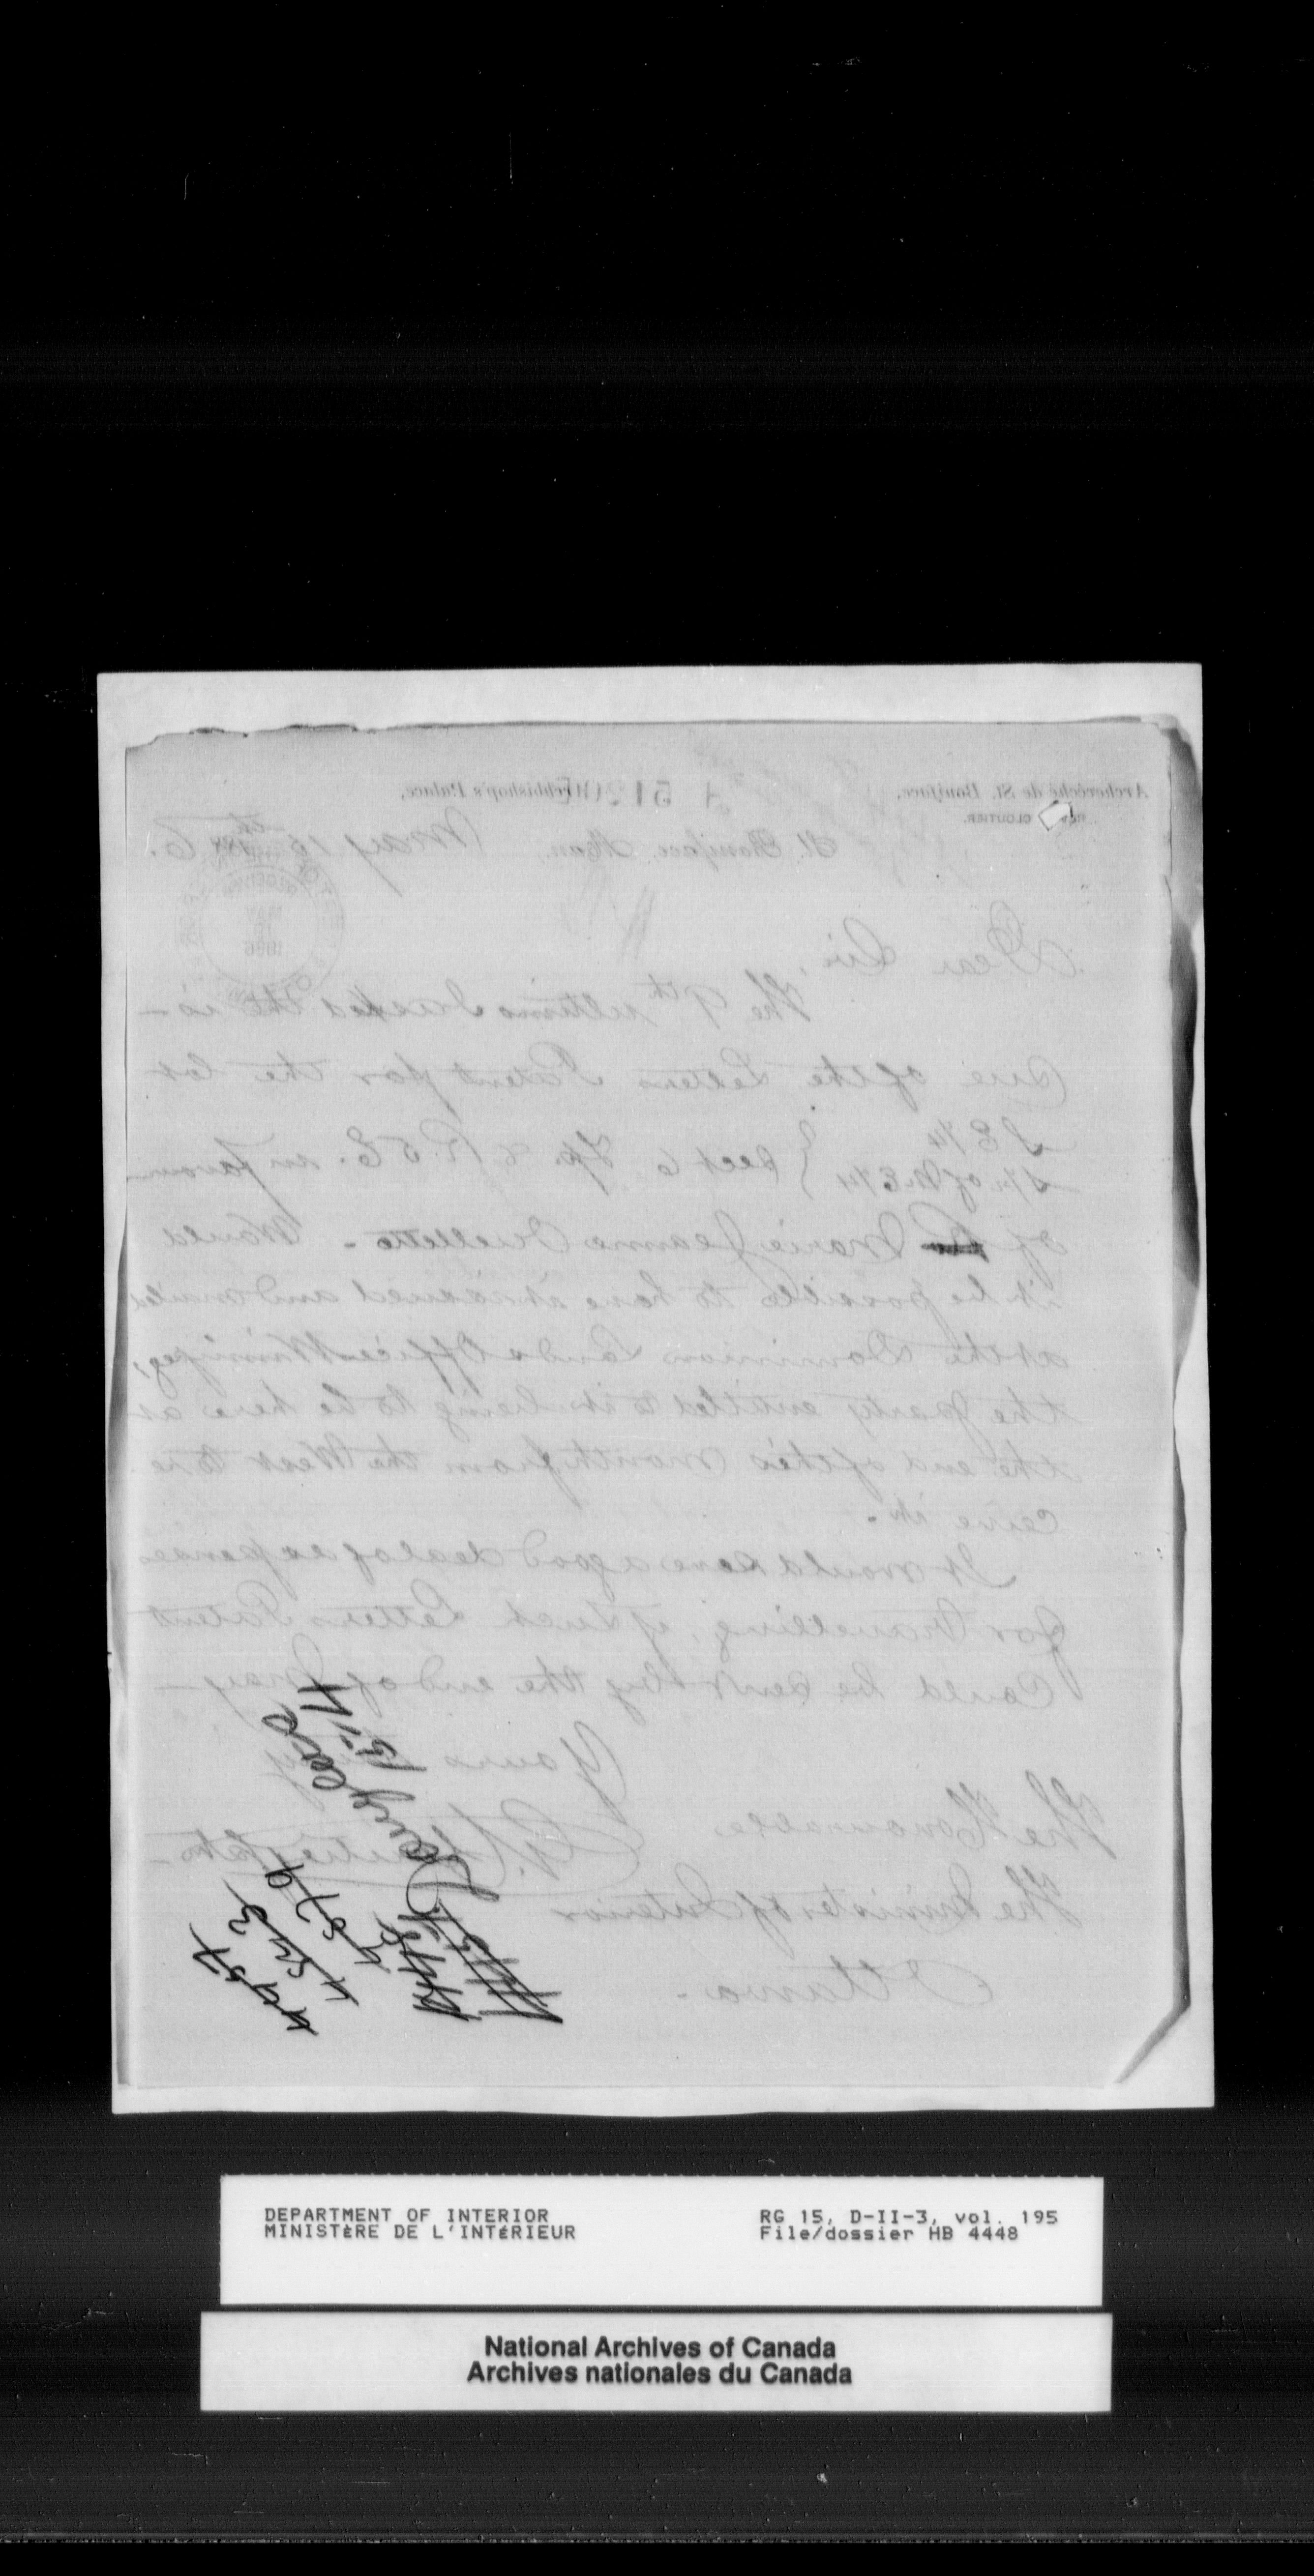 Archevêché de St. Boniface,
Archbishop's Palace,
REV. CLOUTIER.
St. Boniface, Man. May 15th 1886.
RECEIVED
MAY
1886
Dear Sir,
The 9th ultimo I asked the is-
sue of the Letters Patent for the lot
S E 1/4
S 1/2 of N E 1/4 } Sect 6 Tp. 8 R. 5 E. in favour
of Marie Jeanne Ouellette - Would
it be possible to have it issued and mailed
at the Dominion Lands Office Winnipeg,
the party entitled to it being to be here at
the end of this month from the West to re
ceive it.
It would save a good deal of expenses
for travelling, if such Letters Patent
could be sent by the end of May -
Yours truly
The Honourable
The Minister of Interior
Ottawa -
DEPARTMENT OF INTERIOR
MINISTÈRE DE L'INTÉRIEUR
RG 15, D-II-3, vol. 195
File/dossier HB 4448
National Archives of Canada
Archives nationales du Canada